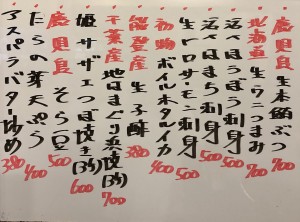 鹿児島 生本鮪ぶつ 700
北海道 生ウニつまみ 700
活〆ほうぼう刺身 500
活〆はまち刺身 500
生トロサーモン刺身 500
初物 ボイルホタルイカ 400
能登産 生子酢 380
千葉産 地はまぐり酒焼(3ヶ) 700
姫サザエつぼ焼き(3ヶ) 600
鹿児島 そら豆 500
たらの芽天ぷら 400
アスパラバター炒め 380